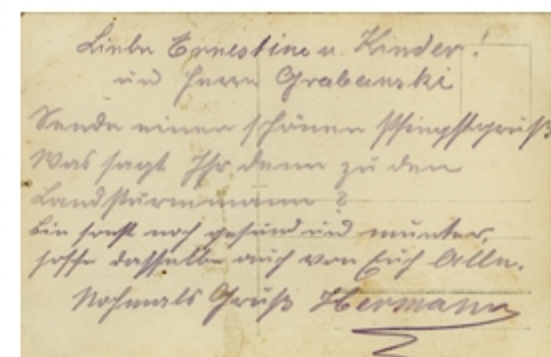 Liebe Ernestine u. Kinder!
und Herrn Grabanski
Sende einen schönen Pfingstgruß
Was sagt Ihr denn zu den
Landsturmmann?
bin sonst noch gesund und munter,
hoffe dasselbe auch von Euch Allen.
Nochmals Gruß Hermann